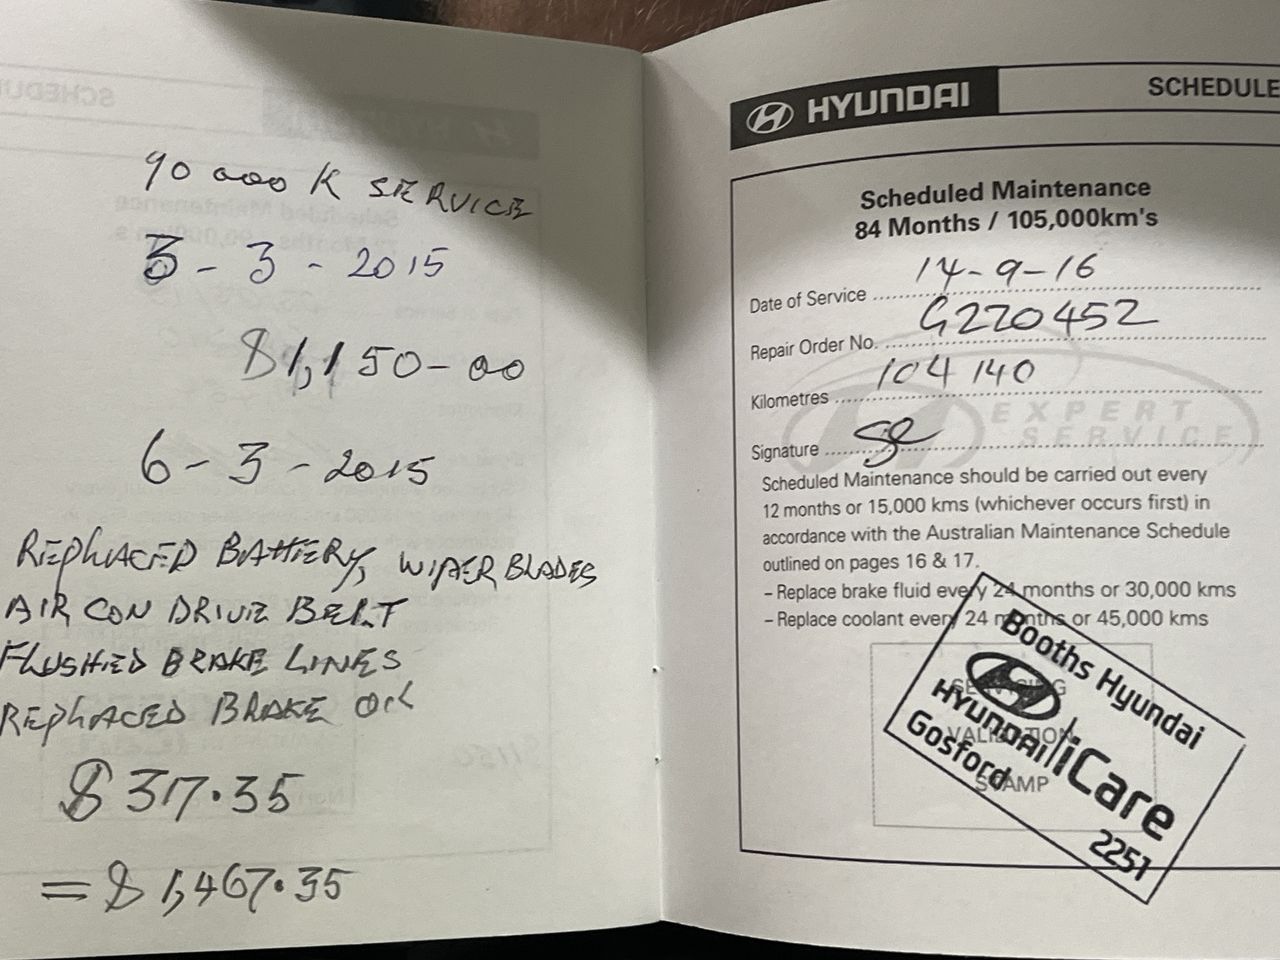 90 000 K SERVICE
5 - 3 - 2015
$1,150-00
6 - 3 - 2015
REPLACED BATTERY, WIPER BLADES
AIR CON DRIVE BELT
FLUSHED BRAKE LINES
REPLACED BRAKE OIL
$317.35
= $1,467.35
HYUNDAI
SCHEDULE
Scheduled Maintenance
84 Months / 105,000km's
Date of Service 14-9-16
Repair Order No. G220452
Kilometres 104 140
EXPERT
SERVICE
Signature
Scheduled Maintenance should be carried out every
12 months or 15,000 kms (whichever occurs first) in
accordance with the Australian Maintenance Schedule
outlined on pages 16 & 17.
– Replace brake fluid every 24 months or 30,000 kms
– Replace coolant every 24 months or 45,000 kms
SERVICING
VALIDATION
STAMP
Booths Hyundai
HYUNDAI iCare
Gosford 2251